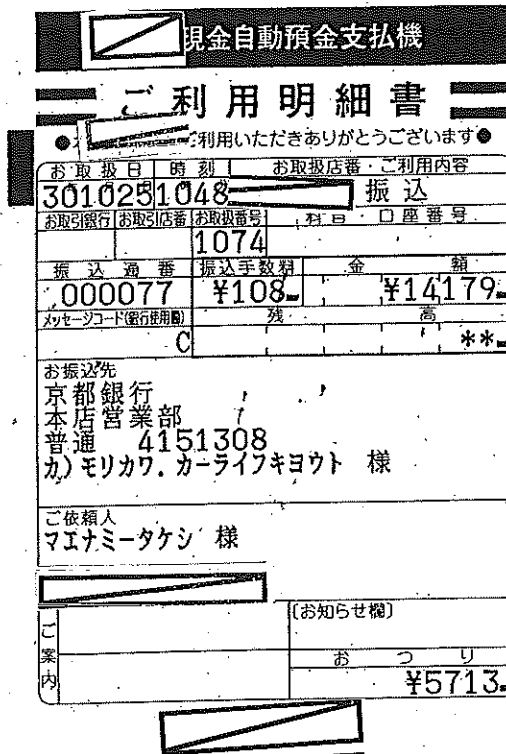 現金自動預金支払機
ご利用明細書
ご利用いただきありがとうございます●
お取扱日 時刻 お取扱店番・ご利用内容
301025 1048 振込
お取引銀行 お取引店番 お取扱番号 科目・口座番号
1074
振込通番 振込手数料 金額
000077 ¥108 ¥14179
メッセージコード(銀行使用欄) 残高
C **
お振込先
京都銀行
本店営業部
普通 4151308
カ)モリカワ.カーライフキヨウト 様
ご依頼人
マエナミータケシ 様
ご案内
(お知らせ欄)
おつり
¥5713